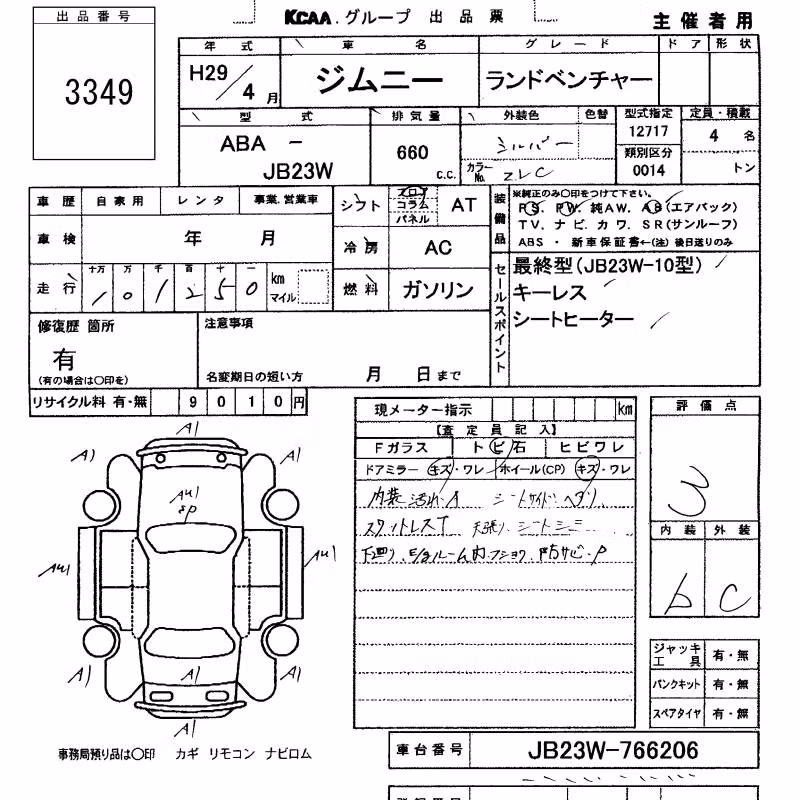 KCAA. グループ 出品票
主催者用
出品番号
3349
年式 車名 グレード ドア 形状
H29/4月 ジムニー ランドベンチャー
型式 排気量 外装色 色替 型式指定 定員・積載
ABA - 660 シルバー 12717 4 名
JB23W C.C. カラーNo. ZLC 類別区分 0014 トン
車歴 自家用 レンタ 事業.営業車
シフト フロア コラム パネル AT
装備品
※純正のみ〇印をつけて下さい。
PS. PW. 純AW. AB(エアバック)
TV. ナビ. カワ. SR(サンルーフ)
ABS ・ 新車保証書←(注) 後日送りのみ
車検 年 月
冷房 AC
走行 十万 万 千 百 十 一 km マイル
1 0 1 2 5 0
燃料 ガソリン
セールスポイント
最終型(JB23W-10型)
キーレス
シートヒーター
修復歴 箇所
有
(有の場合は〇印を)
注意事項
名変期日の短い方 月 日まで
リサイクル料 有・無 9 0 1 0 円
現メーター指示 km
【査定員記入】
Fガラス トビ石 ヒビワレ
ドアミラー キズ・ワレ ホイール(CP) キズ・ワレ
内装汚れA シートサイド ヘタリ
スタットレスT 天張り、シートシミ
下廻り、E/gルーム内フショク、防サビ・P
評価点
3
内装 外装
b C
A1
A1 A1
AU1
SP
AU1 AU1
A1 A1
A1
A1
ジャッキ工具 有・無
パンクキット 有・無
スペアタイヤ 有・無
事務局預り品は〇印 カギ リモコン ナビロム
車台番号 JB23W-766206